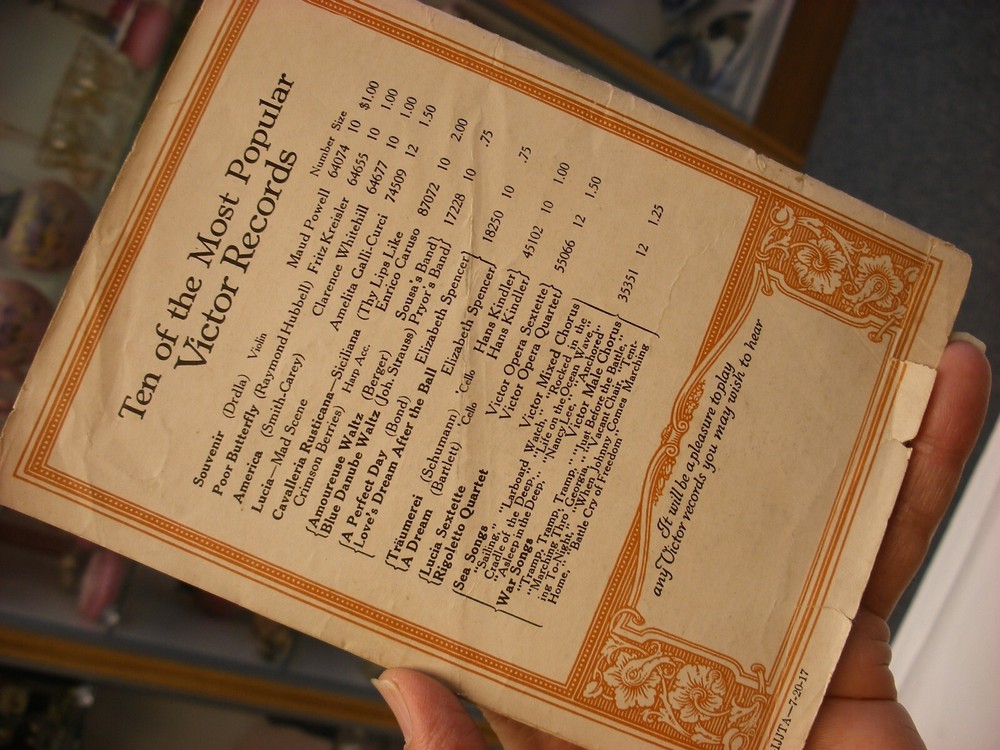 Ten of the Most Popular
Victor Records
Number Size
Souvenir (Drdla) Violin Maud Powell 64074 10 $1.00
Poor Butterfly (Raymond Hubbell) Fritz Kreisler 64655 10 1.00
America (Smith-Carey) Clarence Whitehill 64677 10 1.00
Lucia—Mad Scene Amelita Galli-Curci 74509 12 1.50
Cavalleria Rusticana—Siciliana (Thy Lips Like
Crimson Berries) Harp Acc. Enrico Caruso 87072 10 2.00
{Amoureuse Waltz (Berger) Sousa's Band}
{Blue Danube Waltz (Joh. Strauss) Pryor's Band} 17228 10 .75
{A Perfect Day (Bond) Elizabeth Spencer}
{Love's Dream After the Ball Elizabeth Spencer} 19250 10 .75
{Träumerei (Schumann) 'Cello Hans Kindler}
{A Dream (Bartlett) 'Cello Hans Kindler} 45102 10 1.00
{Lucia Sextette Victor Opera Sextette}
{Rigoletto Quartet Victor Opera Quartet} 55066 12 1.50
Sea Songs Victor Mixed Chorus
"Sailing," "Larboard Watch," "Rocked in the
Cradle of the Deep," "Life on the Ocean Wave,"
"Asleep in the Deep," "Nancy Lee," "Anchored"
War Songs Victor Male Chorus 35351 12 1.25
"Tramp, Tramp, Tramp," "Just Before the Battle,"
"Marching Thro' Georgia," "Vacant Chair," "Tent-
ing To-Night," "When Johnny Comes Marching
Home," "Battle Cry of Freedom"
It will be a pleasure to play
any Victor records you may wish to hear
JJTA—7-20-17